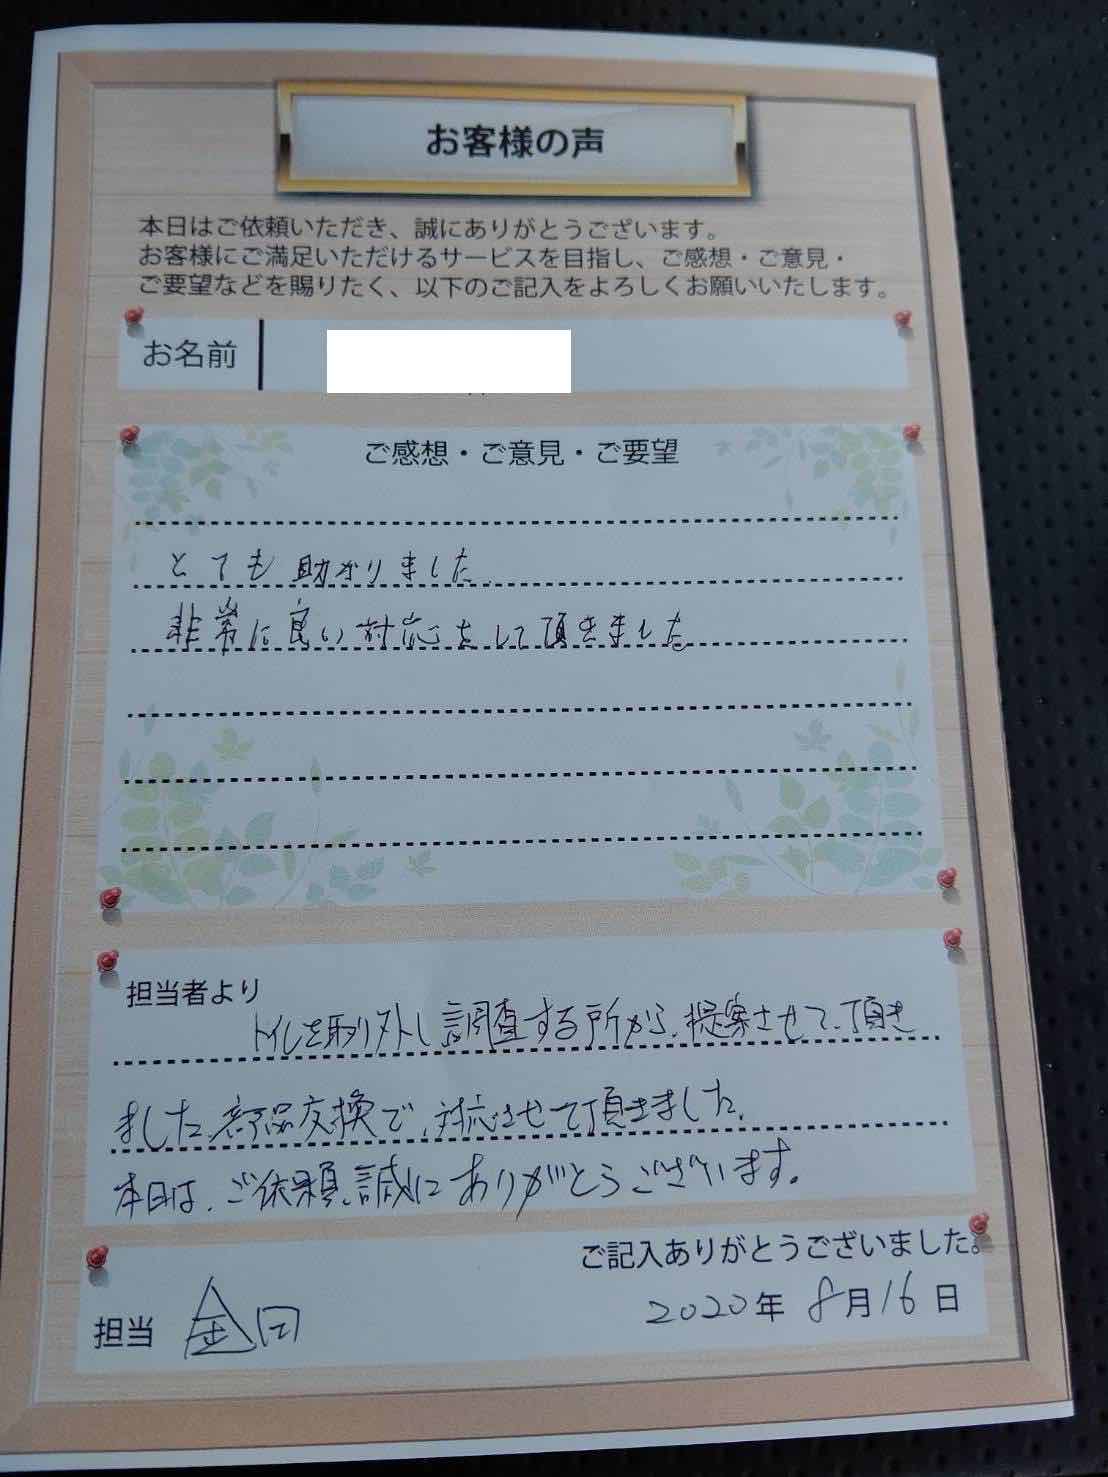 お客様の声
本日はご依頼いただき、誠にありがとうございます。
お客様にご満足いただけるサービスを目指し、ご感想・ご意見・
ご要望などを賜りたく、以下のご記入をよろしくお願いいたします。
お名前
ご感想・ご意見・ご要望
とても助かりました
非常に良い対応をして頂きました
担当者より
トイレを取り外し調査する所から、提案させて、頂き
ました、部品交換で、対応させて頂きました、
本日は、ご依頼、誠にありがとうございます。
ご記入ありがとうございました。
担当 金
2020年 8月16日